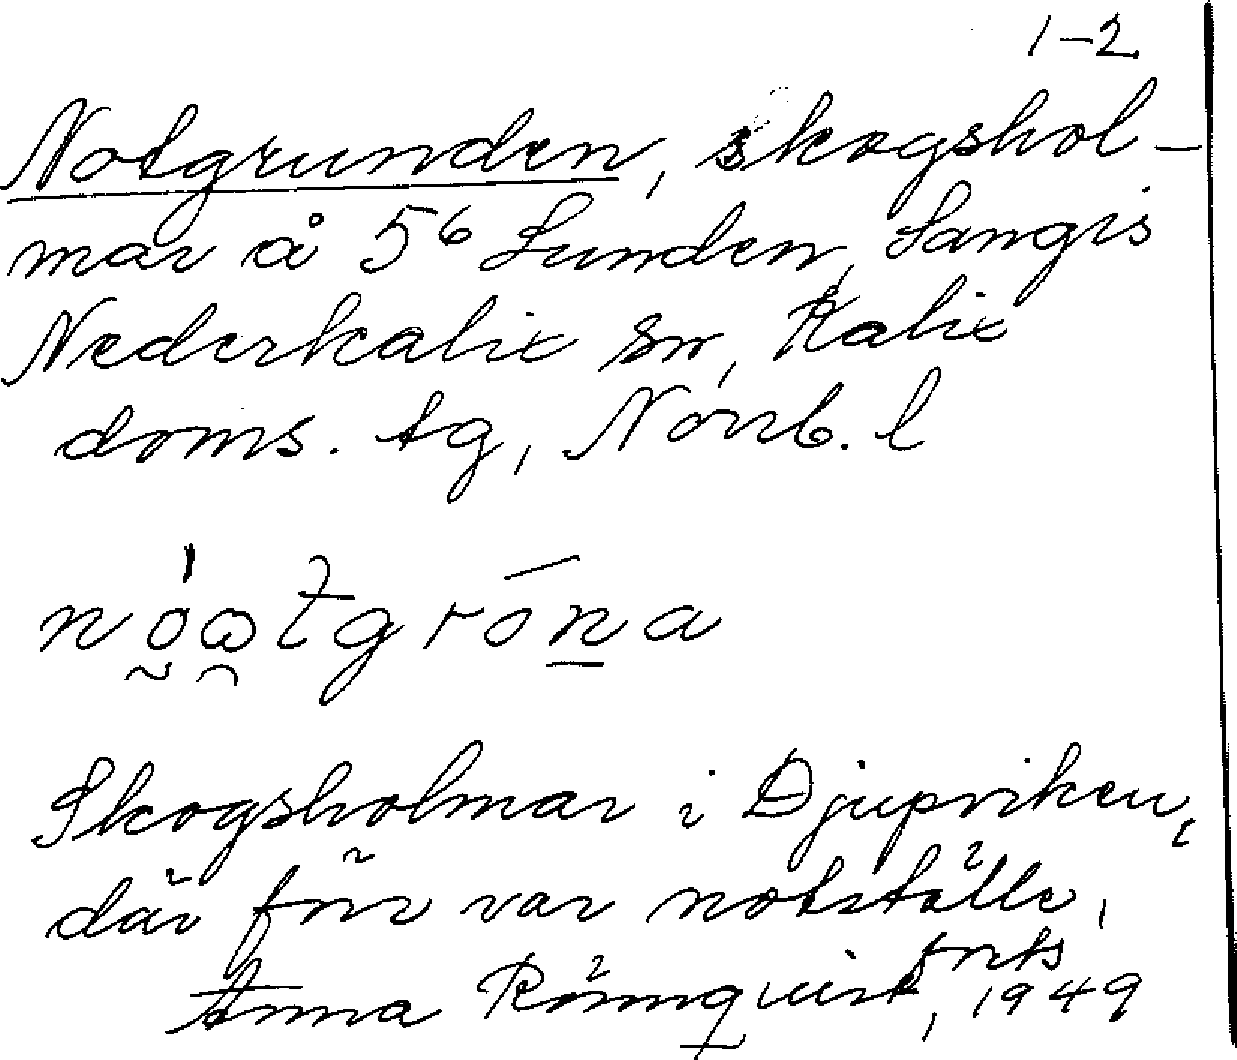 1-2
Notgrunden, skogshol-
mar å 5⁶ Lunden, Sangis
Nederkalix sn, Kalix
doms. tg, Norrb. l
Skogsholmar i Djupviken,
där förr var notställe,
forts
Anna Rönnqvist, 1949